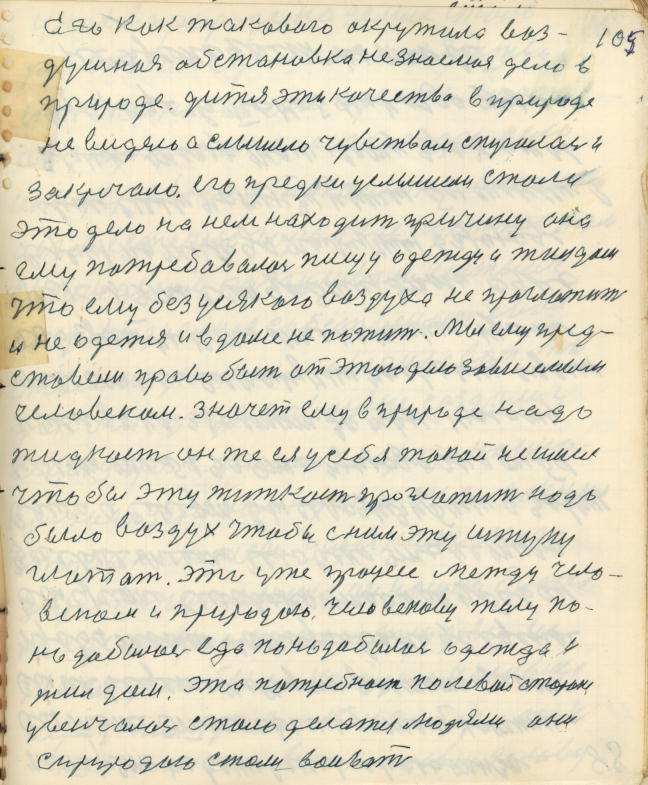 105
его как такового окружила воз-
душная обстановка не знаемая дело в
природе. дитя эти качества в природе
не видело а слышело чувствам спугалася и
закричало. его предки услышели стали
это дело на нем находит причину она
ему потребавалася пищу одежду и жил дом
что ему без усякого воздуха не проглотит
и не одется и в доме не пожит. Мы ему пред-
ставели право быт от этого дело зависемым
человеком. значет ему в природе надо
жидкост он же с у себя такой не имел
чтобы эту житкост проглотит надо
было воздух чтобы с ним эту штуку
глотат. это уже процес между чело-
веком и природою. человеку телу по-
надобалася еда понадобалася одежда и
жил дом. эта потребност полевой
увенчалася стало делатся людями они
с природою стали воюват